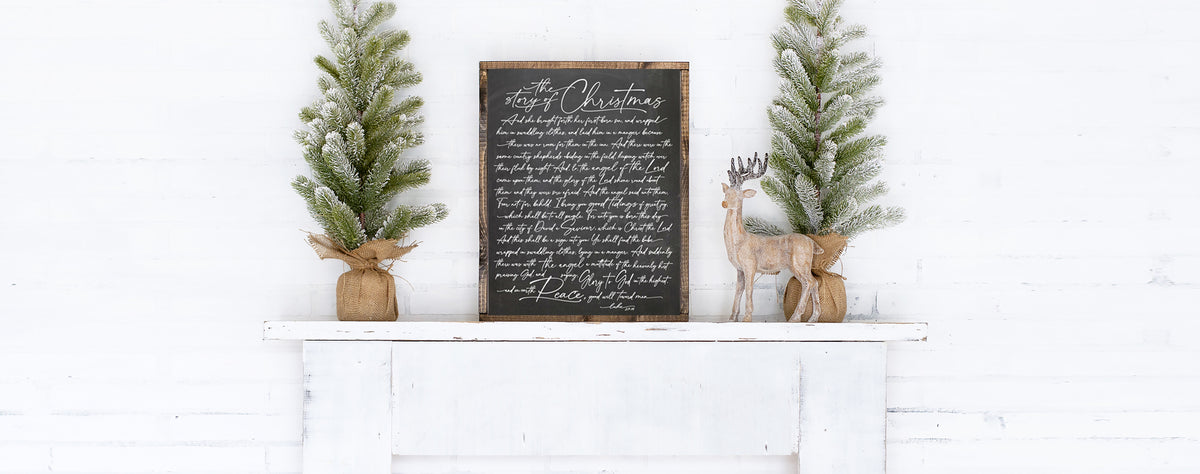 the
story of Christmas
And she brought forth her first born son, and wrapped
him in swaddling clothes, and laid him in a manger because
there was no room for them in the inn. And there were in the
same country shepherds abiding in the field, keeping watch over
their flock by night. And lo the angel of the Lord
came upon them, and the glory of the Lord shone round about
them and they were sore afraid. And the angel said unto them,
Fear not: for, behold, I bring you good tidings of great joy
which shall be to all people. For unto you is born this day
in the city of David a Saviour, which is Christ the Lord.
And this shall be a sign unto you Ye shall find the babe
wrapped in swaddling clothes, lying in a manger. And suddenly
there was with the angel a multitude of the heavenly host
praising God, and saying, Glory to God in the highest
and on earth Peace, good will toward men.
Luke